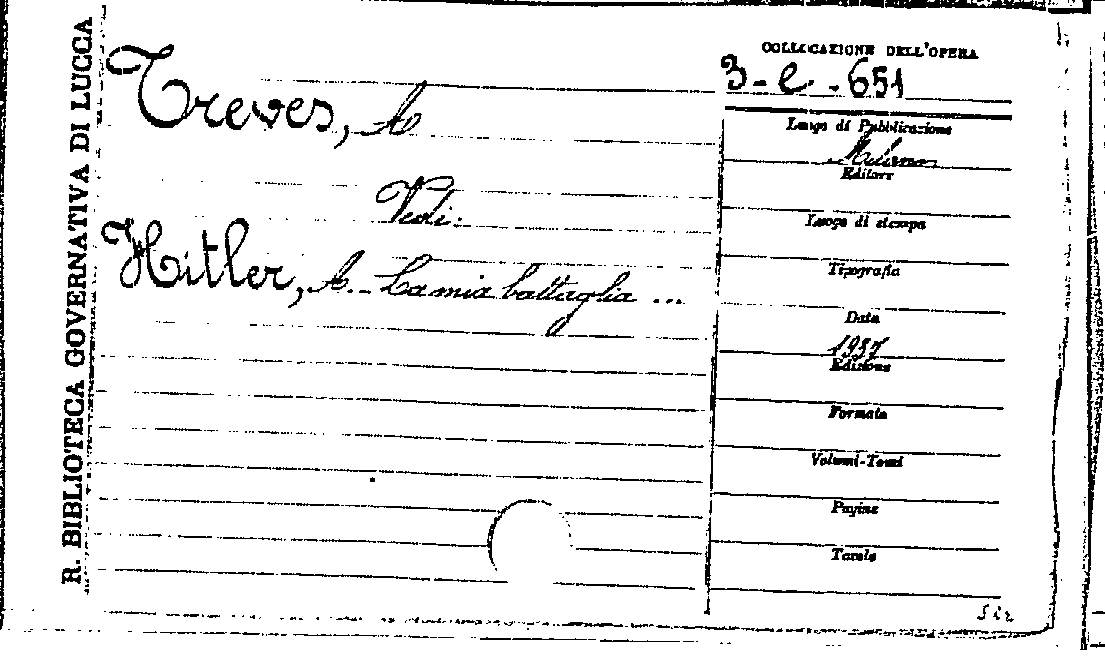 R. BIBLIOTECA GOVERNATIVA DI LUCCA
Treves, A
Vedi:
Hitler, A. - La mia battaglia ...
COLLOCAZIONE DELL'OPERA
3-e-651
Luogo di Pubblicazione
Milano
Editore
Luogo di stampa
Tipografia
Data
1937
Edizione
Formato
Volumi-Tomi
Pagine
Tavole